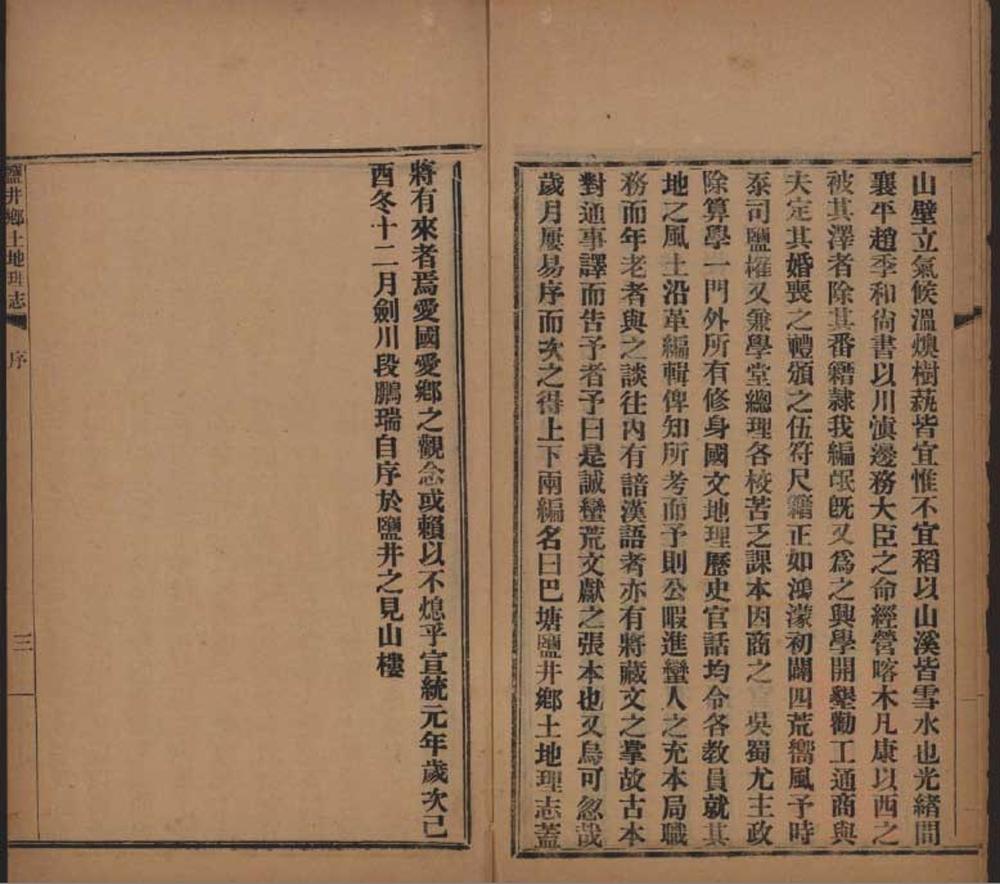 山壁立氣候溫燠樹蓺皆宜惟不宜稻以山溪皆雪水也光緒間
襄平趙季和尙書以川滇邊務大臣之命經營喀木凡康以西之
被其澤者除其番籍隸我編氓旣又爲之興學開墾勸工通商與
夫定其婚喪之禮頒之伍符尺籍正如鴻濛初闢四荒嚮風予時
忝司鹽榷又兼學堂總理各校苦乏課本因商之 吳蜀尤主政
除算學一門外所有修身國文地理歷史官話均令各教員就其
地之風土沿革編輯俾知所考而予則公暇進蠻人之充本局職
務而年老者與之談往內有諳漢語者亦有將藏文之掌故古本
對通事譯而告予者予曰是誠蠻荒文獻之張本也又烏可忽哉
歲月屢易序而次之得上下兩編名曰巴塘鹽井鄉土地理志蓋
將有來者焉愛國愛鄉之觀念或賴以不熄乎宣統元年歲次己
酉冬十二月劍川段鵬瑞自序於鹽井之見山樓
鹽井鄉土地理志
序
三